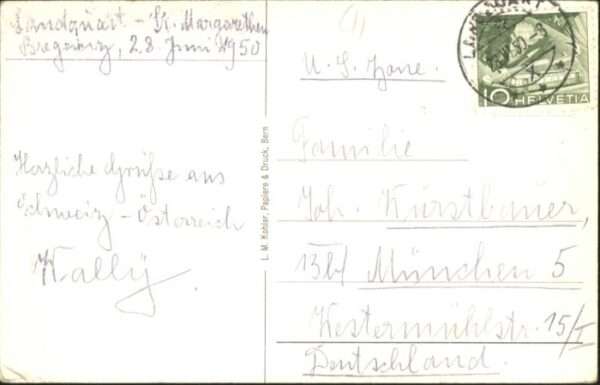 Landquart - St. Margarethen
Bregenz, 28. Juni 1950
Herzliche Grüße aus
Schweiz - Österreich
Wally
L. M. Kohler, Papiere & Druck, Bern
10 HELVETIA
U. S. Zone.
Familie
Joh. Kürstbauer,
13b/ München 5
Westermühlstr. 15/I
Deutschland.